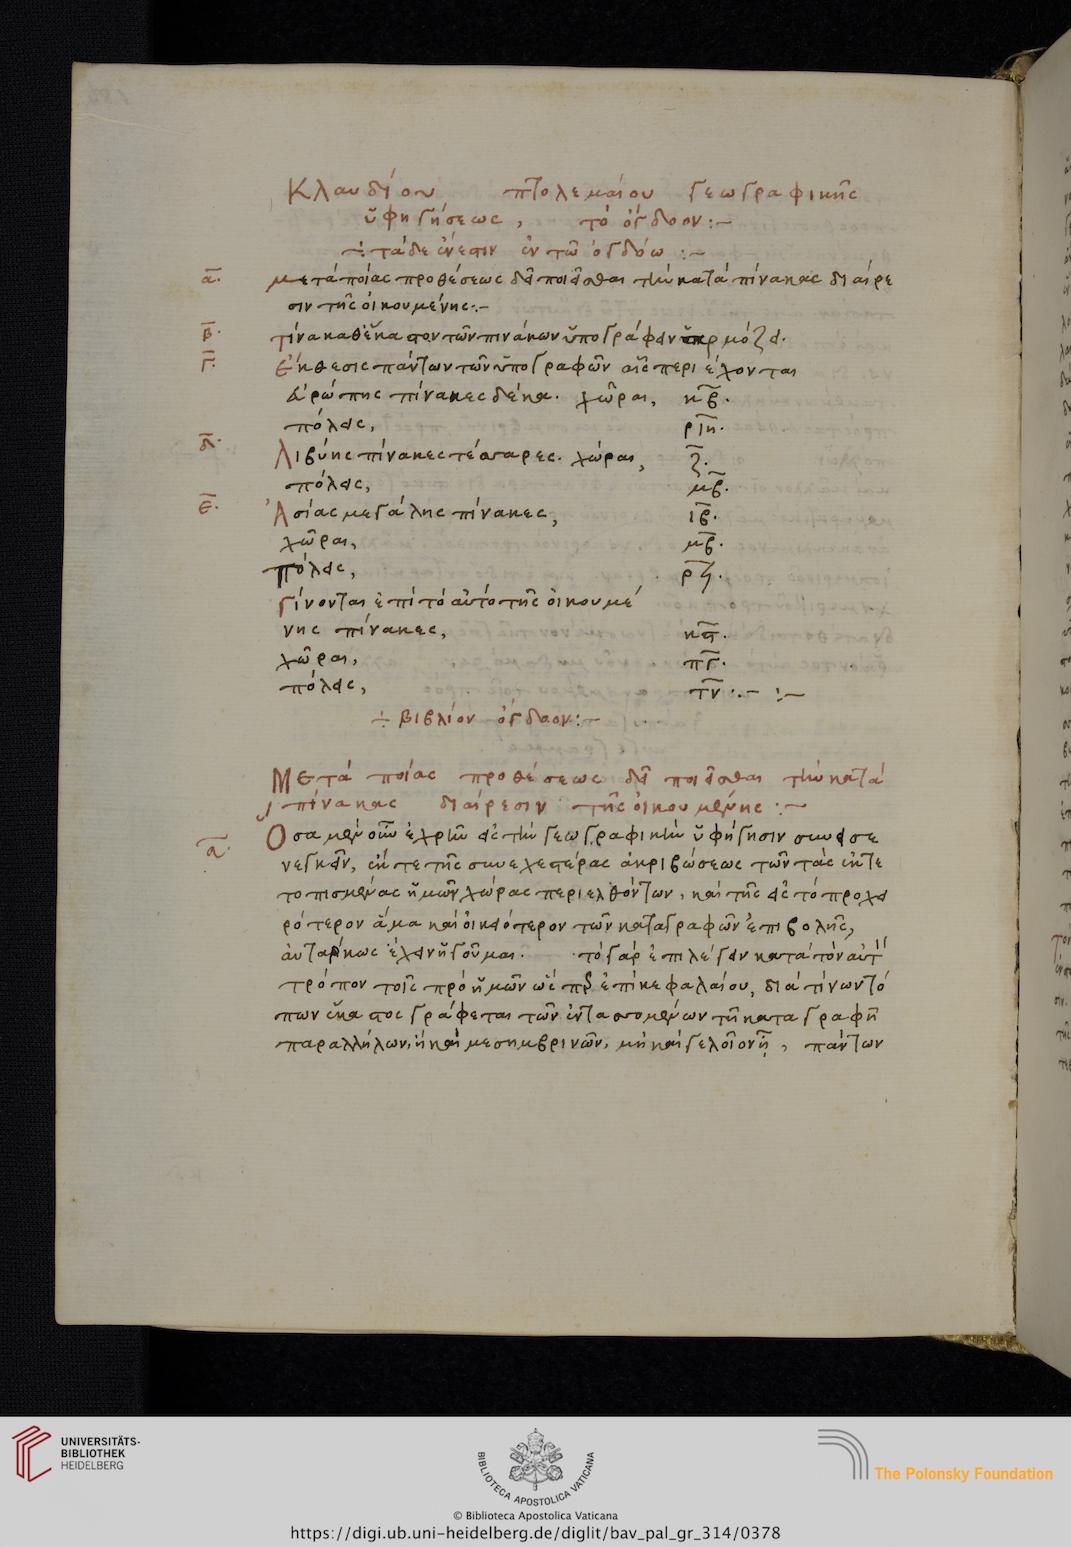 Κλαυδίου πτολεμαίου γεωγραφικῆς
ὑφηγήσεως, τὸ ὄγδοον:~
τάδε ἔνεστιν ἐν τῶ ὀγδόω :~
α. μετὰ ποίας προθέσεως δεῖ ποιεῖσθαι τὴν κατὰ πίνακας διαίρε
σιν τῆς οἰκουμένης:~
β. τίνα καθ' ἕκαστον τῶν πινάκων ὑπογράφειν ἁρμόζει.
γ. ἔκθεσις πάντων τῶν ὑπογραφῶν αἷς περιέχονται
εὐρώπης πίνακες δέκα. χῶραι, κβ.
πόλεις, ριη.
δ. λιβύης πίνακες τέσσαρες. χώραι, ζ.
πόλεις, μβ.
ε. Ἀσίας μεγάλης πίνακες, ιβ.
χῶραι, μβ.
πόλεις,
γίνονται ἐπιτοαυτὸ τῆς οἰκουμέ
νης πίνακες, κϛ.
χῶραι, πγ.
πόλεις, τν :~ :~
βιβλίον ὄγδοον:~
Μετὰ ποίας προθέσεως δεῖ ποιεῖσθαι τὴν κατὰ
πίνακας διαίρεσιν τῆς οἰκουμένης :~
α. Ὅσα μὲν οὖν ἐχρῆν εἰς τὴν γεωγραφικὴν ὑφήγησιν συνεισε
νεγκεῖν, ἔκ τε τῆς συνεχεστέρας ἀκριβώσεως τῶν τὰς ἐκτε
τοπισμένας ἡμῶν χώρας περιελθόντων, καὶ τῆς εἰς τὸ προχει
ρότερον ἅμα καὶ οἰκειότερον τῶν καταγραφῶν ἐπιβολῆς,
αὐτάρκως ἔχειν ἡγοῦμαι. τὸ γὰρ ἐπιλέγειν κατὰ τὸν αὐτ
τρόπον τοῖς πρὸ ἡμῶν ὡς ἐπὶ κεφαλαίου, διὰ τίνων τό
πων ἕκαστος γράφεται τῶν ἐντασσομένων τῆ καταγραφῆ
παραλλήλων, ἢ καὶ μεσημβρινῶν, μὴ καὶ γελοῖον ἦ, πάντων
UNIVERSITÄTS-
BIBLIOTHEK
HEIDELBERG
BIBLIOTECA APOSTOLICA VATICANA
The Polonsky Foundation
© Biblioteca Apostolica Vaticana
https://digi.ub.uni-heidelberg.de/diglit/bav_pal_gr_314/0378